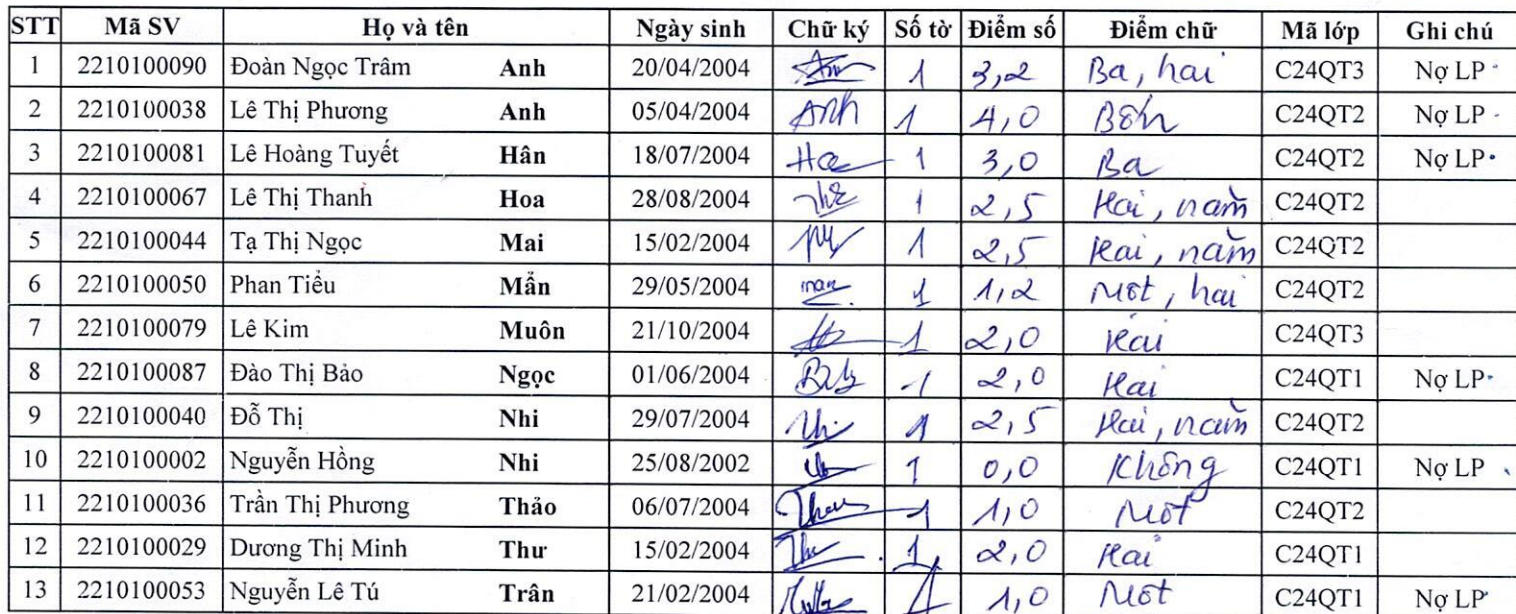 STT Mã SV Họ và tên Ngày sinh Chữ ký Số tờ Điểm số Điểm chữ Mã lớp Ghi chú
1 2210100090 Đoàn Ngọc Trâm Anh 20/04/2004 1 3,2 Ba, hai C24QT3 Nợ LP
2 2210100038 Lê Thị Phương Anh 05/04/2004 Anh 1 4,0 Bốn C24QT2 Nợ LP
3 2210100081 Lê Hoàng Tuyết Hân 18/07/2004 1 3,0 Ba C24QT2 Nợ LP
4 2210100067 Lê Thị Thanh Hoa 28/08/2004 1 2,5 Hai, năm C24QT2
5 2210100044 Tạ Thị Ngọc Mai 15/02/2004 1 2,5 Hai, năm C24QT2
6 2210100050 Phan Tiểu Mẩn 29/05/2004 1 1,2 Một, hai C24QT2
7 2210100079 Lê Kim Muôn 21/10/2004 1 2,0 Hai C24QT3
8 2210100087 Đào Thị Bảo Ngọc 01/06/2004 1 2,0 Hai C24QT1 Nợ LP
9 2210100040 Đỗ Thị Nhi 29/07/2004 1 2,5 Hai, năm C24QT2
10 2210100002 Nguyễn Hồng Nhi 25/08/2002 1 0,0 Không C24QT1 Nợ LP
11 2210100036 Trần Thị Phương Thảo 06/07/2004 1 1,0 Một C24QT2
12 2210100029 Dương Thị Minh Thư 15/02/2004 1 2,0 Hai C24QT1
13 2210100053 Nguyễn Lê Tú Trân 21/02/2004 1 1,0 Một C24QT1 Nợ LP